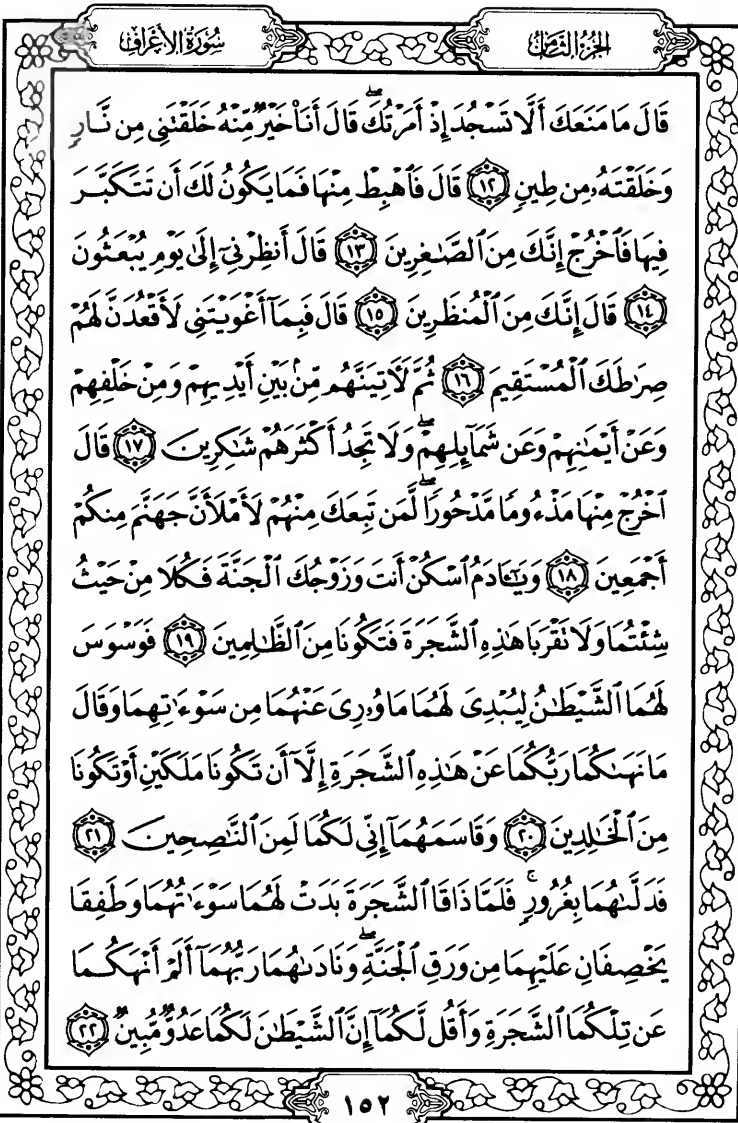 الجزء الثامن
سورة الأعراف
قَالَ مَا مَنَعَكَ أَلَّا تَسْجُدَ إِذْ أَمَرْتُكَ ۖ قَالَ أَنَا۠ خَيْرٌ مِّنْهُ خَلَقْتَنِى مِن نَّارٍ
وَخَلَقْتَهُۥ مِن طِينٍ ١٢ قَالَ فَٱهْبِطْ مِنْهَا فَمَا يَكُونُ لَكَ أَن تَتَكَبَّرَ
فِيهَا فَٱخْرُجْ إِنَّكَ مِنَ ٱلصَّٰغِرِينَ ١٣ قَالَ أَنظِرْنِىٓ إِلَىٰ يَوْمِ يُبْعَثُونَ
١٤ قَالَ إِنَّكَ مِنَ ٱلْمُنظَرِينَ ١٥ قَالَ فَبِمَآ أَغْوَيْتَنِى لَأَقْعُدَنَّ لَهُمْ
صِرَٰطَكَ ٱلْمُسْتَقِيمَ ١٦ ثُمَّ لَـَٔاتِيَنَّهُم مِّنۢ بَيْنِ أَيْدِيهِمْ وَمِنْ خَلْفِهِمْ
وَعَنْ أَيْمَٰنِهِمْ وَعَن شَمَآئِلِهِمْ ۖ وَلَا تَجِدُ أَكْثَرَهُمْ شَٰكِرِينَ ١٧ قَالَ
ٱخْرُجْ مِنْهَا مَذْءُومًا مَّدْحُورًا ۖ لَّمَن تَبِعَكَ مِنْهُمْ لَأَمْلَأَنَّ جَهَنَّمَ مِنكُمْ
أَجْمَعِينَ ١٨ وَيَٰٓـَٔادَمُ ٱسْكُنْ أَنتَ وَزَوْجُكَ ٱلْجَنَّةَ فَكُلَا مِنْ حَيْثُ
شِئْتُمَا وَلَا تَقْرَبَا هَٰذِهِ ٱلشَّجَرَةَ فَتَكُونَا مِنَ ٱلظَّٰلِمِينَ ١٩ فَوَسْوَسَ
لَهُمَا ٱلشَّيْطَٰنُ لِيُبْدِىَ لَهُمَا مَا وُۥرِىَ عَنْهُمَا مِن سَوْءَٰتِهِمَا وَقَالَ
مَا نَهَىٰكُمَا رَبُّكُمَا عَنْ هَٰذِهِ ٱلشَّجَرَةِ إِلَّآ أَن تَكُونَا مَلَكَيْنِ أَوْ تَكُونَا
مِنَ ٱلْخَٰلِدِينَ ٢٠ وَقَاسَمَهُمَآ إِنِّى لَكُمَا لَمِنَ ٱلنَّٰصِحِينَ ٢١
فَدَلَّىٰهُمَا بِغُرُورٍ ۚ فَلَمَّا ذَاقَا ٱلشَّجَرَةَ بَدَتْ لَهُمَا سَوْءَٰتُهُمَا وَطَفِقَا
يَخْصِفَانِ عَلَيْهِمَا مِن وَرَقِ ٱلْجَنَّةِ ۖ وَنَادَىٰهُمَا رَبُّهُمَآ أَلَمْ أَنْهَكُمَا
عَن تِلْكُمَا ٱلشَّجَرَةِ وَأَقُل لَّكُمَآ إِنَّ ٱلشَّيْطَٰنَ لَكُمَا عَدُوٌّ مُّبِينٌ ٢٢
١٥٢